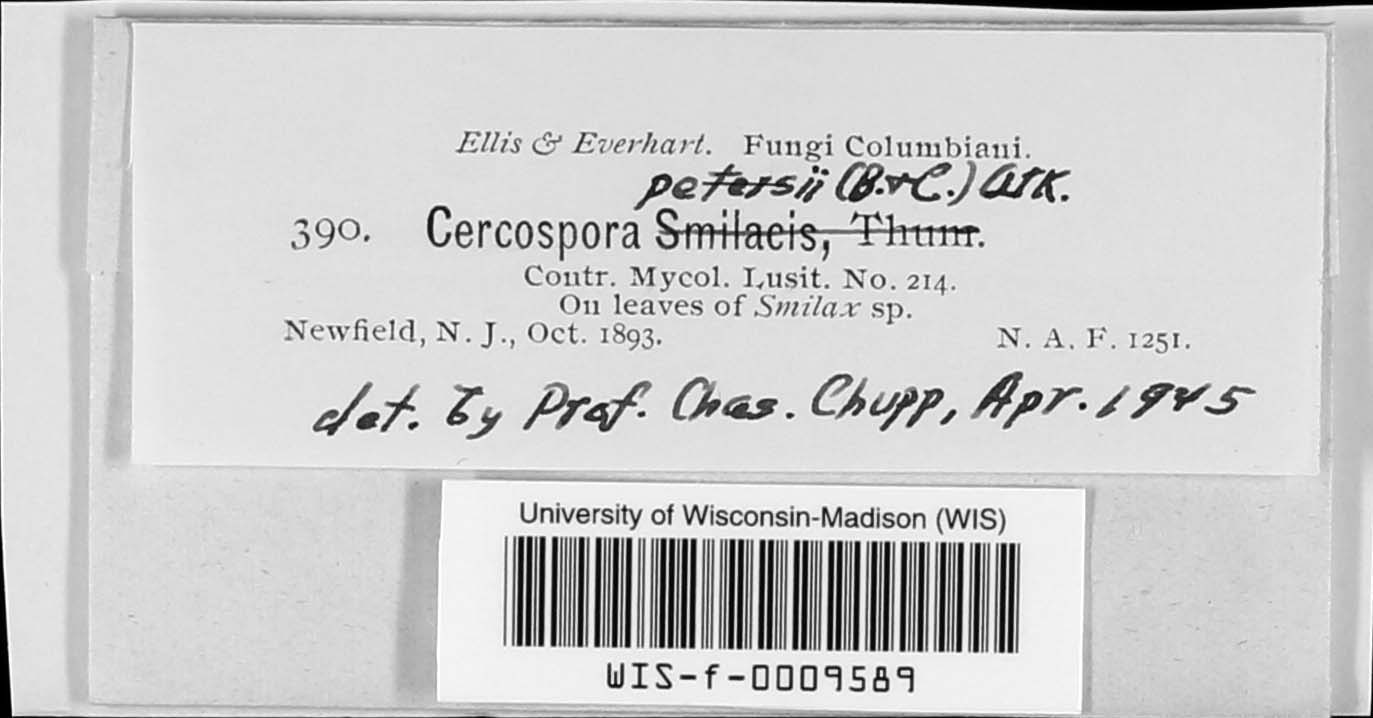 Ellis & Everhart. Fungi Columbiani.
petersii (B.&C.) Atk.
390. Cercospora Smilacis, Thum.
Contr. Mycol. Lusit. No. 214.
On leaves of Smilax sp.
Newfield, N. J., Oct. 1893. N. A. F. 1251.
det. by Prof. Chas. Chupp, Apr. 1945
University of Wisconsin-Madison (WIS)
WIS-f-0009589